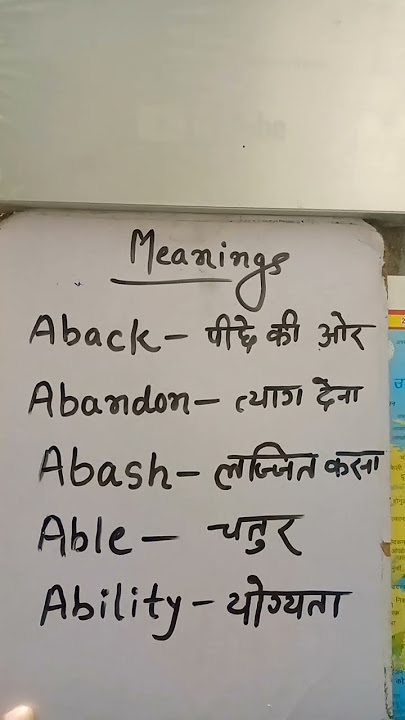 Meanings
Aback - पीछे की ओर
Abandon - त्याग देना
Abash - लज्जित करना
Able - चतुर
Ability - योग्यता